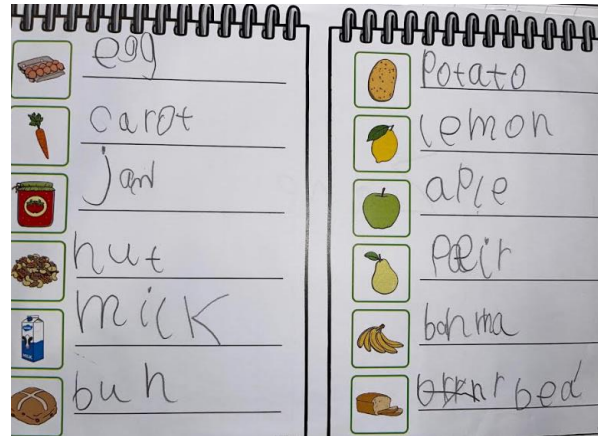 egg
carot
jam
nut
milk
bun
Potato
lemon
aple
Paeir
bonma
bed